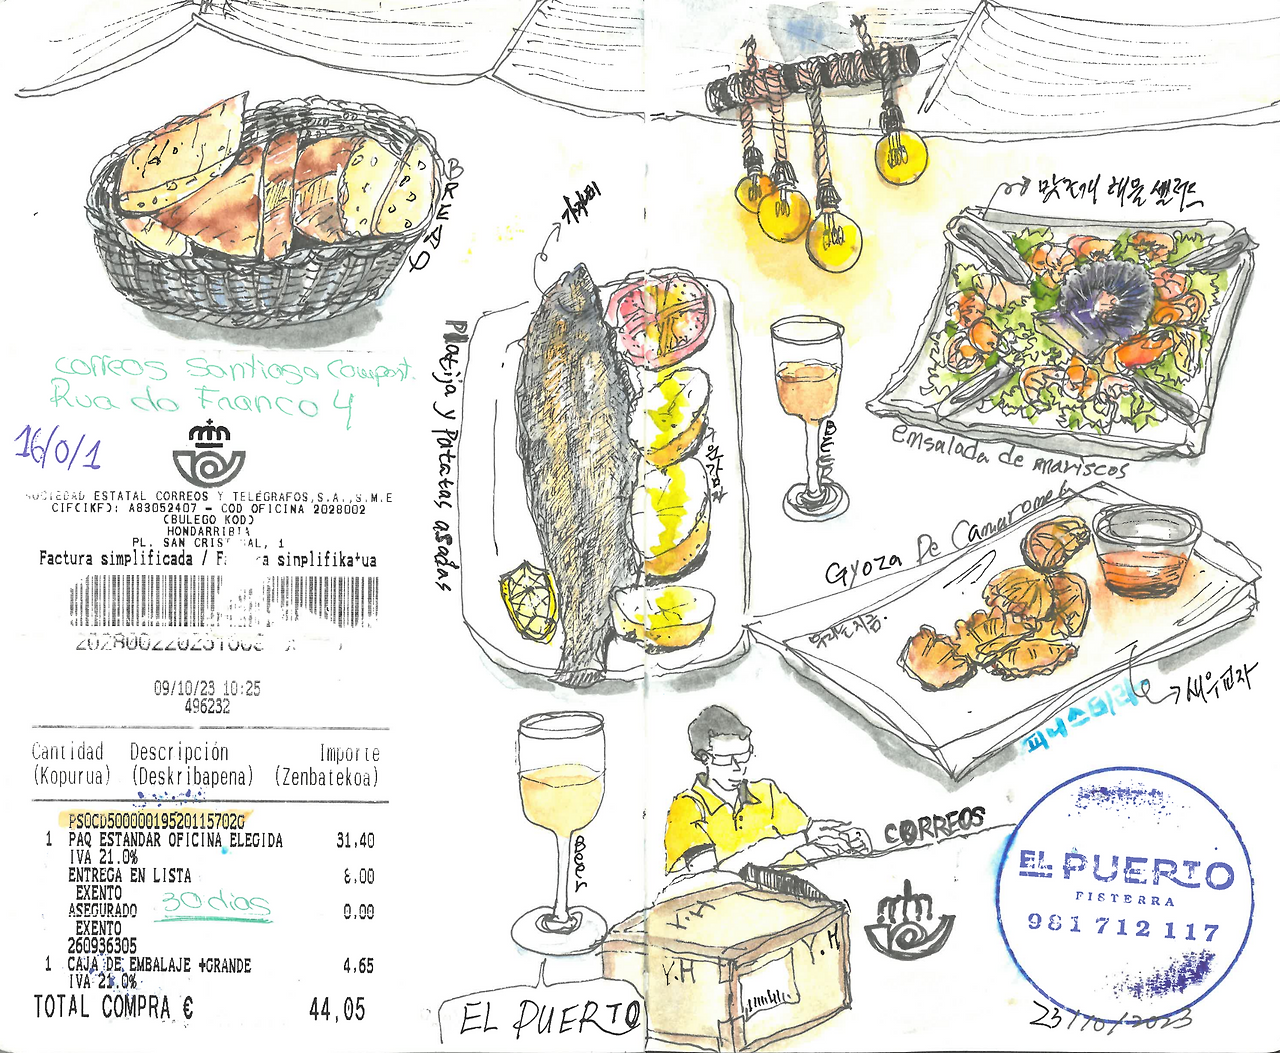 BREAD
correos Santiago Compost.
Rua do Franco 4
16/0/1
SOCIEDAD ESTATAL CORREOS Y TELEGRAFOS,S.A.,S.M.E
CIF(IKF): A83052407 - COD OFICINA 2028002
(BULEGO KOD)
HONDARRIBIA
PL. SAN CRIS AL, 1
Factura simplificada / F a sinplifikatua
09/10/23 10:25
496232
Cantidad Descripción Importe
(Kopurua) (Deskribapena) (Zenbatekoa)
PSOCD50000019520115702G
1 PAQ ESTANDAR OFICINA ELEGIDA 31,40
IVA 21.0%
ENTREGA EN LISTA 8,00
EXENTO
ASEGURADO 0,00
EXENTO
30 dias
260936305
1 CAJA DE EMBALAJE +GRANDE 4,65
IVA 21.0%
TOTAL COMPRA € 44,05
가자미
Platija y Patatas asadas
BEER
맛조개 해물 샐러드
ensalada de mariscos
Gyoza De Camarones
새우교자
피니스테라
Beer
EL PUERTO
CORREOS
Y.H
Y.H
Y.H
EL PUERTO
FISTERRA
981 712 117
23/10/2023